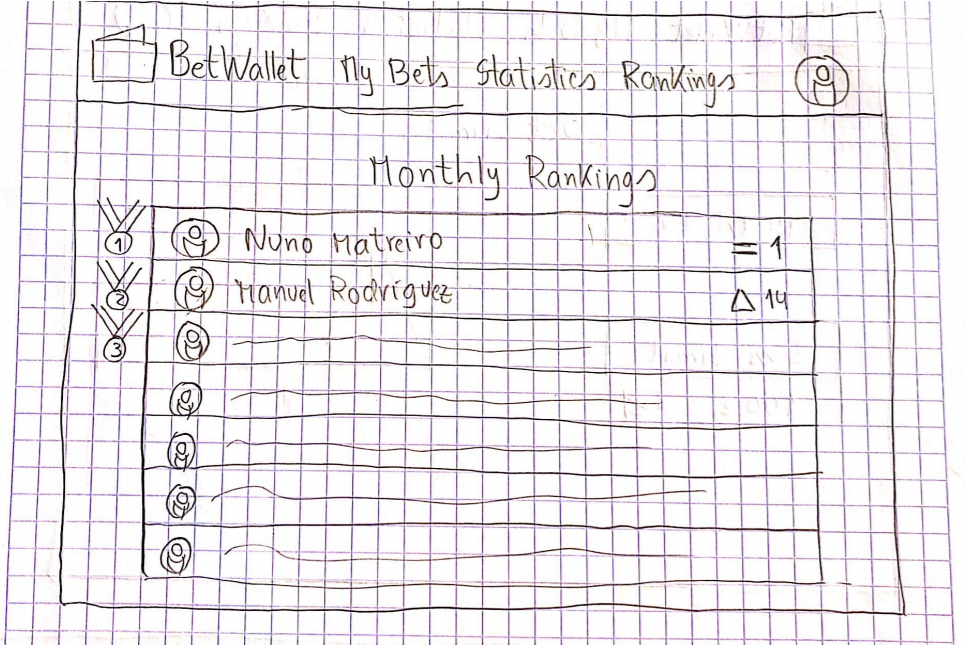 BetWallet My Bets Statistics Rankings
Monthly Rankings
1 Nuno Matreiro = 1
2 Manuel Rodríguez △ 14
3